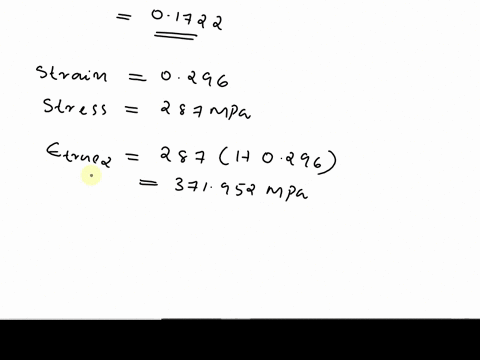 = 0.1722
Strain = 0.296
Stress = 287 MPa
Etrue2 = 287 (1+ 0.296)
= 371.952 MPa